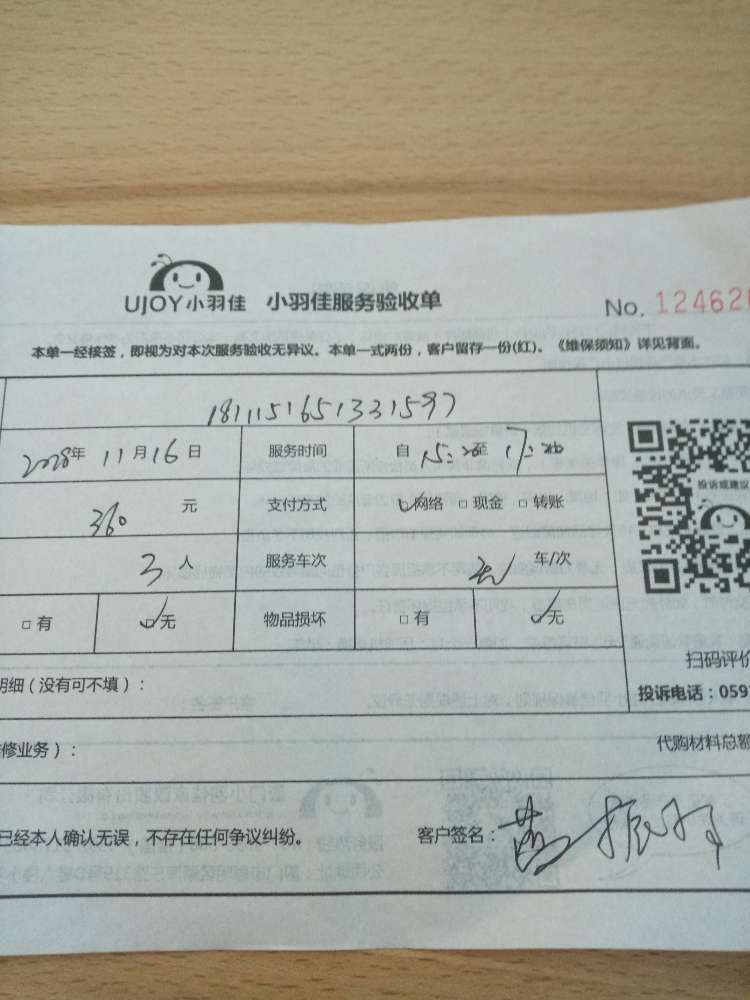 UJOY小羽佳 小羽佳服务验收单 No. 12462
本单一经核签，即视为对本次服务验收无异议。本单一式两份，客户留存一份(红)。《维保须知》详见背面。
1811151651331597
年 11月16日 服务时间 自 15:20至 17:20
360 元 支付方式 ☑网络 □现金 □转账
投诉或建议
3人 服务车次 车/次
□有 ☑无 物品损坏 □有 ☑无
扫码评价
明细（没有可不填）：
投诉电话：059
修业务）： 代购材料总额
已经本人确认无误，不存在任何争议纠纷。 客户签名：